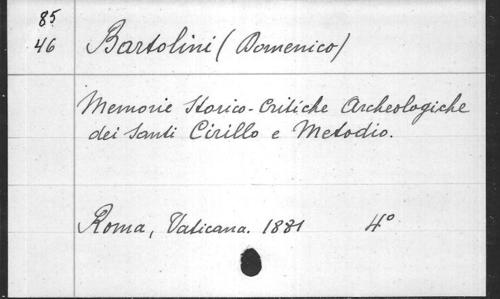 85
46 Bartolini (Domenico)
Memorie Storico-Critiche Archeologiche
dei Santi Cirillo e Metodio.
Roma, Vaticana. 1881 4°